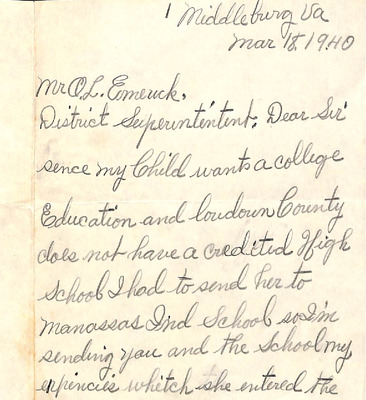 1 Middleburg Va
Mar 18. 1940
Mr O. L. Emeuck,
District Superintintent. Dear Sir'
sence my Child wants a college
Education and loudoun County
does not have a credited High
School I had to send her to
Manassas Ind School so I'm
sending you and the School my
expincies whitch she entered the